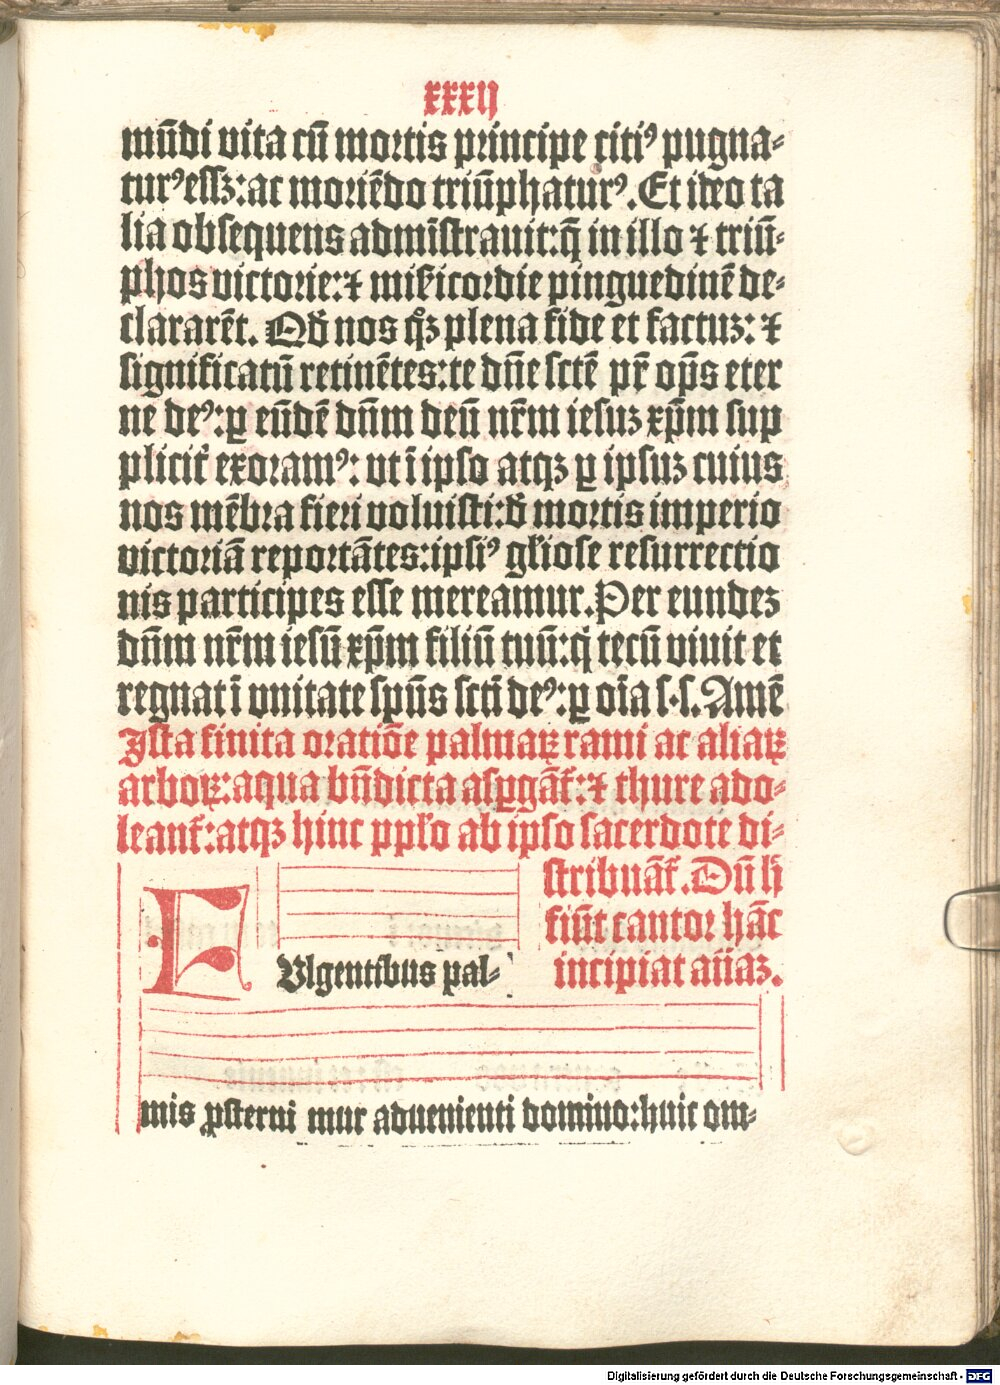 xxxij
mūdi vita cū mortis principe citiꝰ pugna⸗
turꝰ essꝫ: ac moriēdo triūphaturꝰ. Et ideo ta
lia obsequens admīstrauit: q̄ in illo ⁊ triū⸗
phos victorie: ⁊ mis̄icordie pinguedinē de⸗
clararēt. Qd̄ nos qꝫ plena fide et factuꝫ: ⁊
significatū retinētes: te dn̄e sctē pr̄ op̄s eter
ne deꝰ: ꝑ eūdē dn̄m deū nr̄m iesuꝫ xp̄m sup
plicit̄ exoramꝰ: vt ī ipso atqꝫ ꝑ ipsuꝫ cuius
nos mēbra fieri voluisti: d̄ mortis imperio
victoriā reportātes: ipsiꝰ gl̄iose resurrectio
nis participes esse mereamur. Per eundeꝫ
dn̄m nr̄m iesū xp̄m filiū tuū: q̄ tecū viuit et
regnat ī vnitate spūs scti deꝰ: ꝑ oīa s. s. Amē
Ista finita oratiōe palmaꝝ rami ac aliaꝝ
arboꝝ: aqua bn̄dicta aspgāt̄: ⁊ thure ado⸗
leant̄: atqꝫ hinc ppl̄o ab ipso sacerdote di⸗
stribuāt̄. Dū h̄
fiūt cantor hāc
incipiat an̄aꝫ.
FUlgentibus pal⸗
mis ꝓsterni mur aduenienti domino: huic om⸗
Digitalisierung gefördert durch die Deutsche Forschungsgemeinschaft - DFG